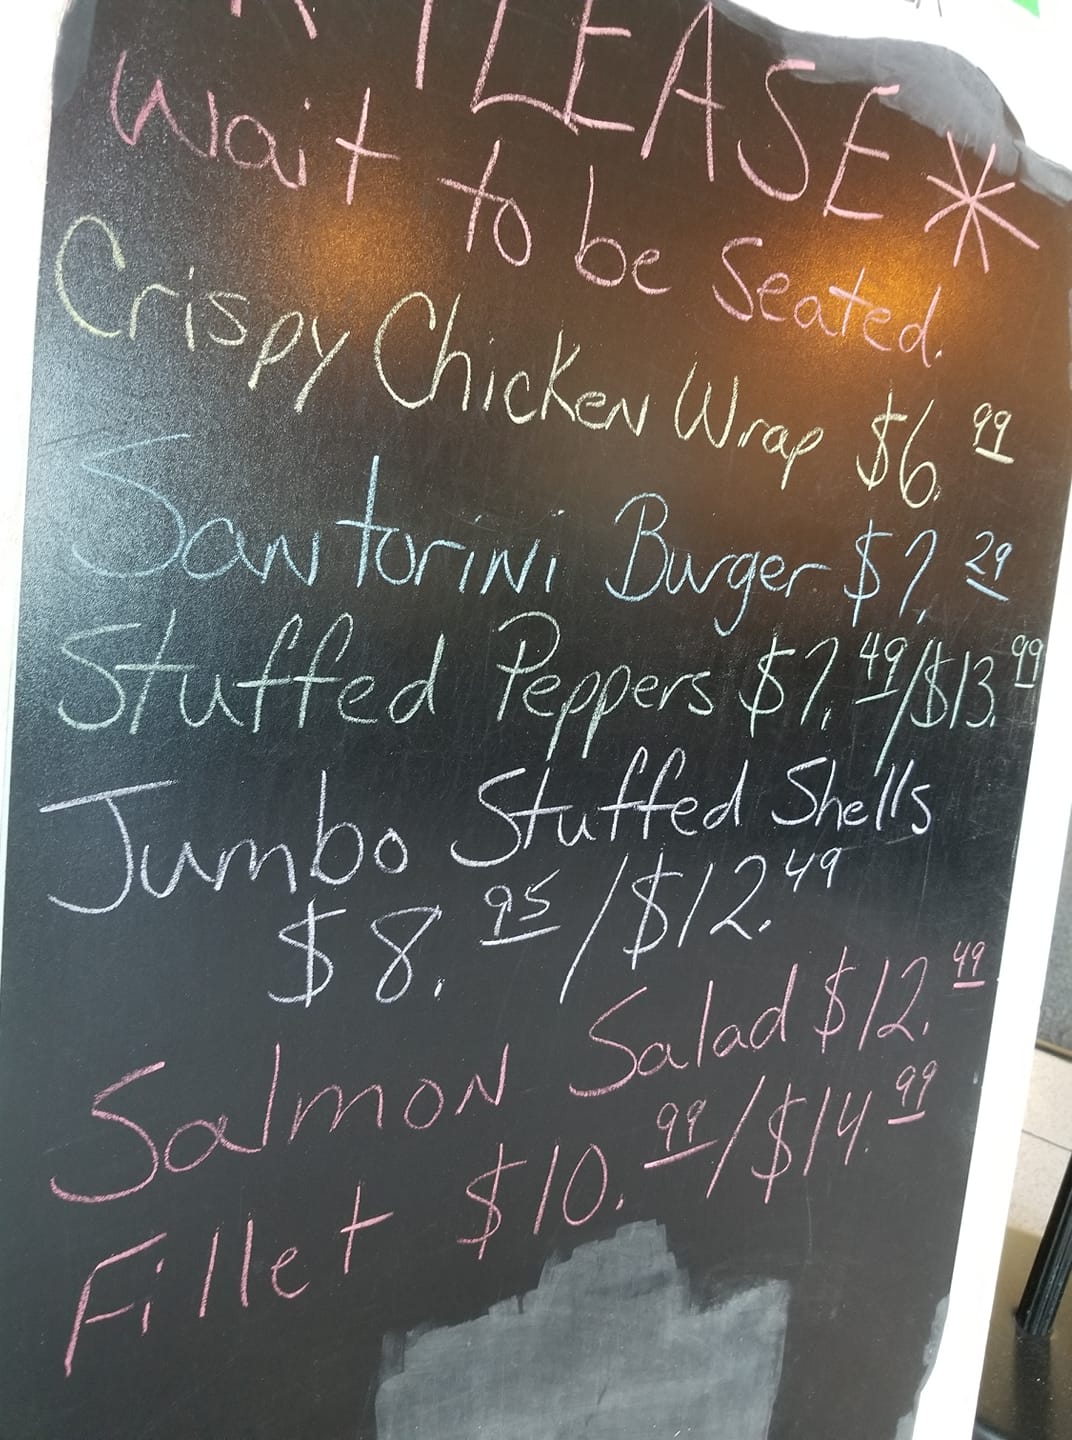 * PLEASE *
Wait to be Seated.
Crispy Chicken Wrap $6.99
Santorini Burger $7.29
Stuffed Peppers $7.49/$13.99
Jumbo Stuffed Shells
$8.95/$12.49
Salmon Salad $12.49
Fillet $10.99/$14.99